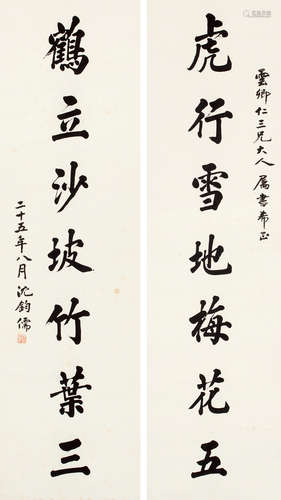 雲卿仁三兄大人属書希正
虎行雪地梅花五
鶴立沙坡竹葉三
二十五年八月沈鈞儒